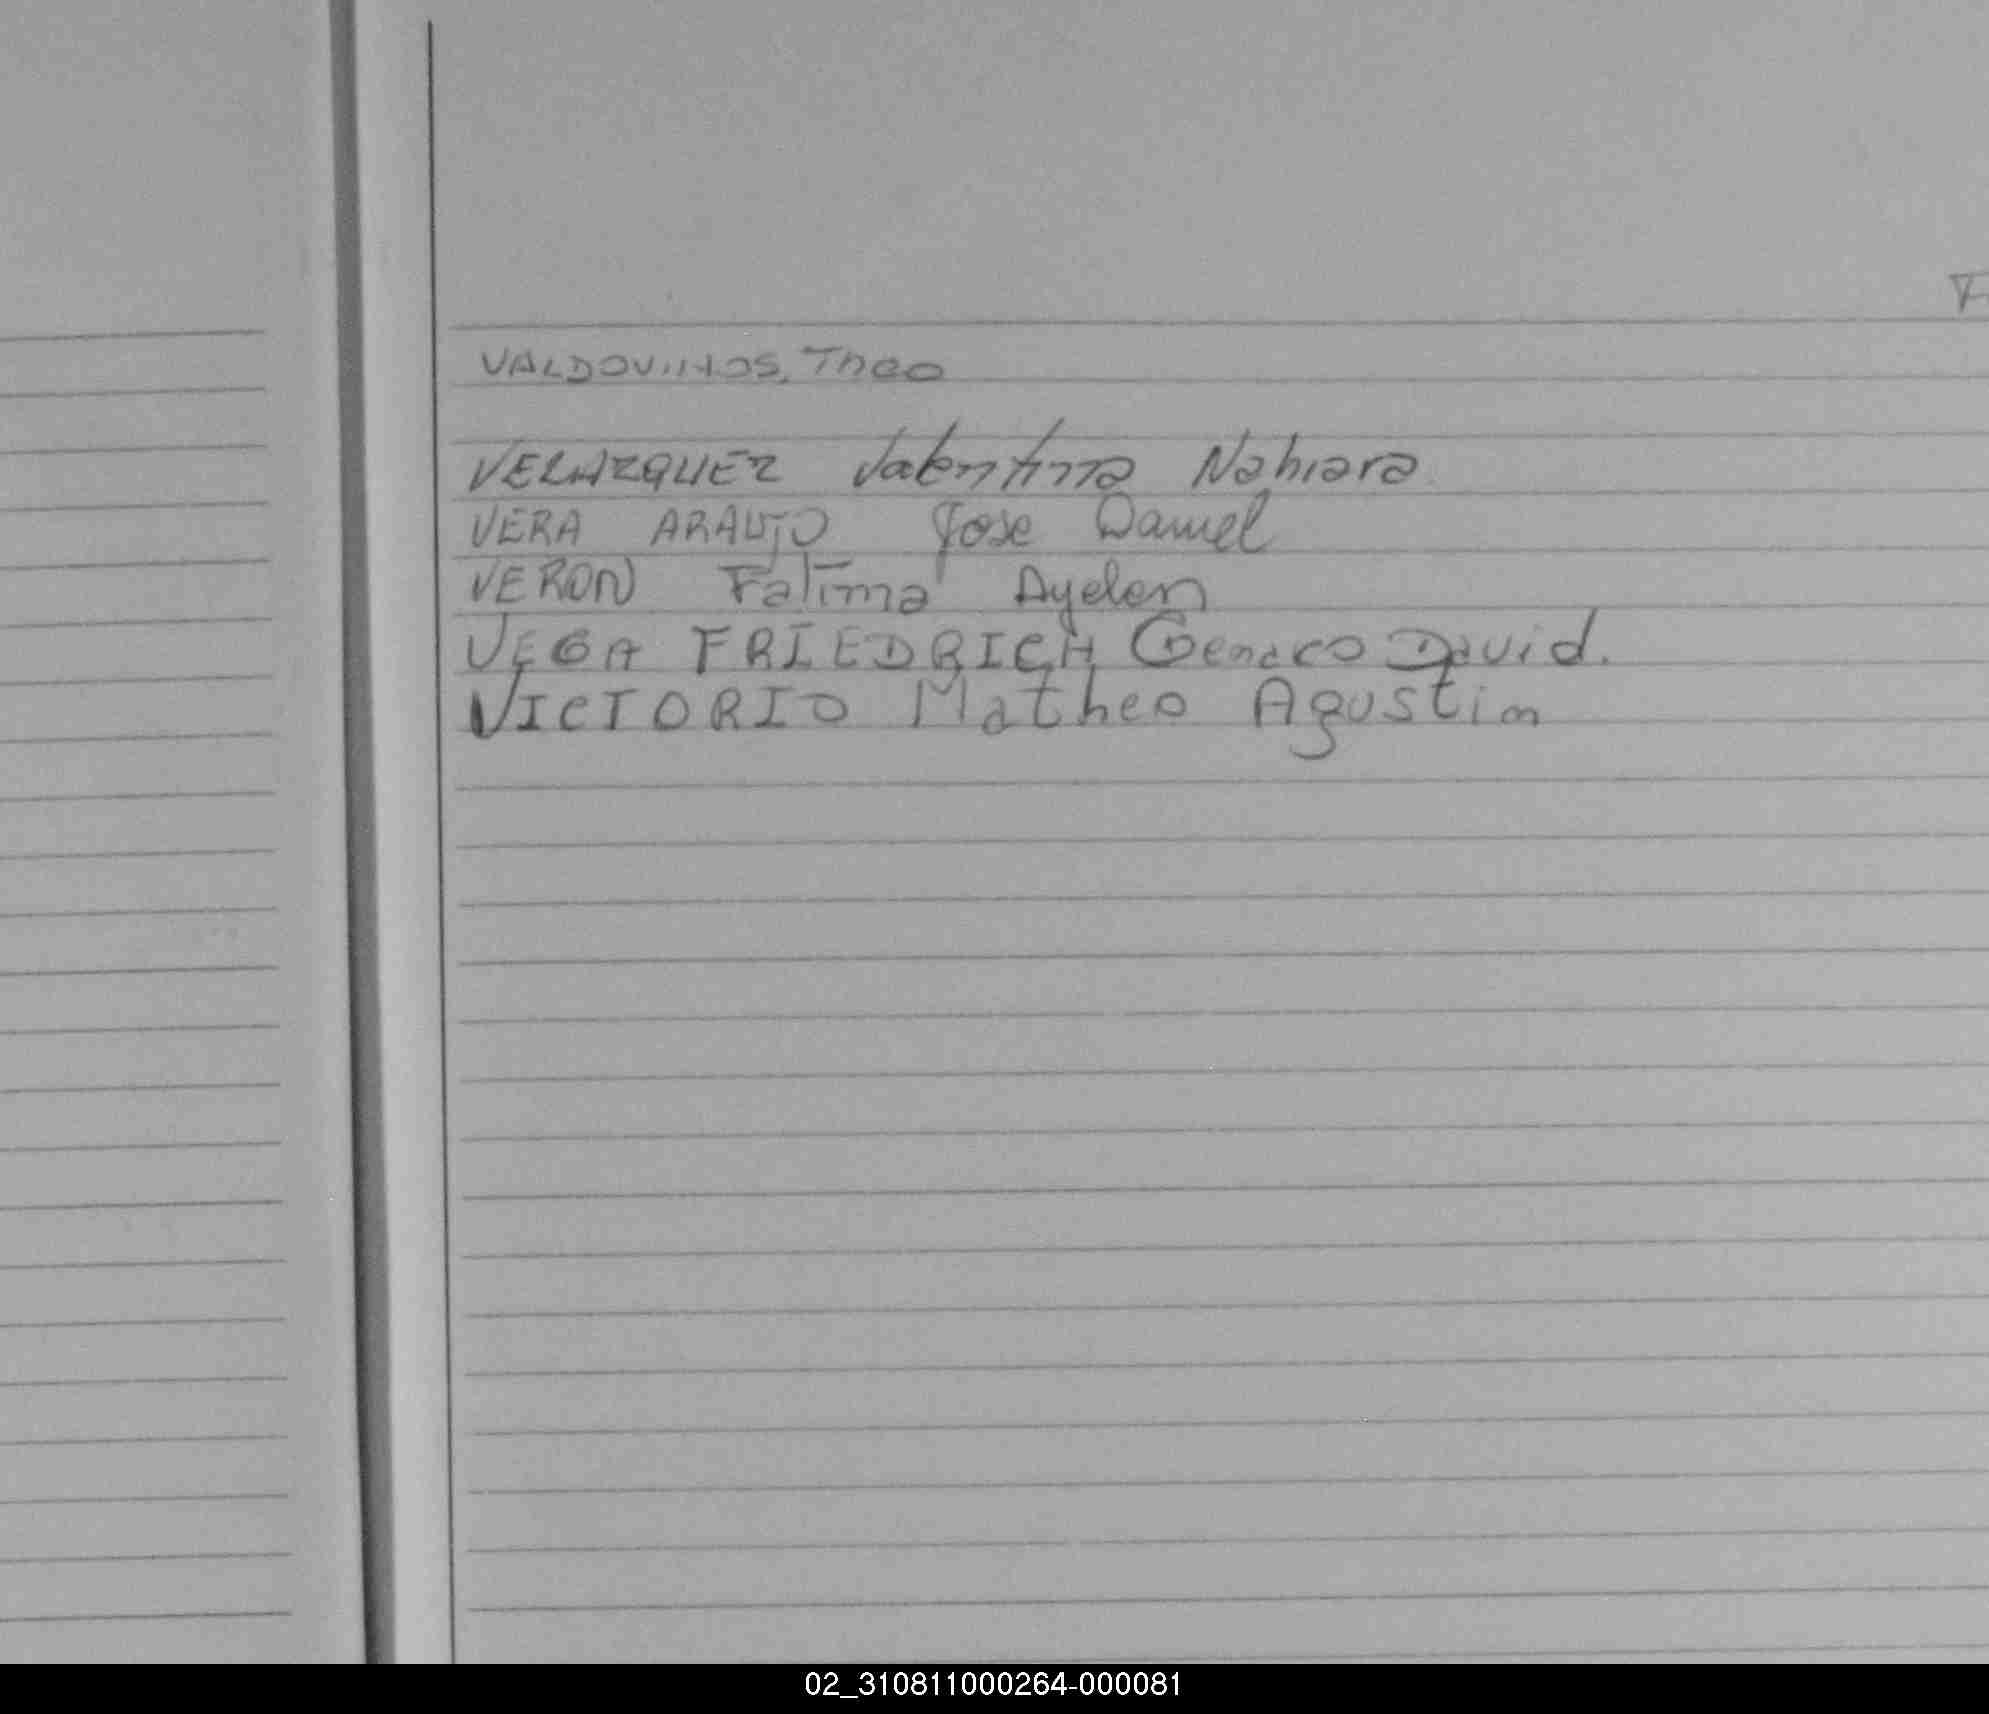 F
VALDOVINOS, Theo
VELAZQUEZ Valentina Nahiara
VERA ARAUJO Jose Daniel
VERON Fatima Ayelen
VEGA FRIEDRICH Genaro David.
VICTORIO Matheo Agustin
02_310811000264-000081